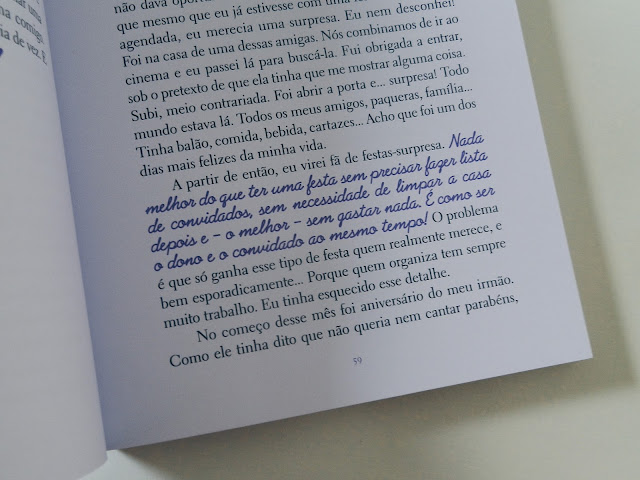 tar uma
na comigo
ia de vez. E
não dava
que mesmo que eu já estivesse com uma
agendada, eu merecia uma surpresa. Eu nem desconfiei!
Foi na casa de uma dessas amigas. Nós combinamos de ir ao
cinema e eu passei lá para buscá-la. Fui obrigada a entrar,
sob o pretexto de que ela tinha que me mostrar alguma coisa.
Subi, meio contrariada. Foi abrir a porta e... surpresa! Todo
mundo estava lá. Todos os meus amigos, paqueras, família...
Tinha balão, comida, bebida, cartazes... Acho que foi um dos
dias mais felizes da minha vida.
A partir de então, eu virei fã de festas-surpresa. Nada
melhor do que ter uma festa sem precisar fazer lista
de convidados, sem necessidade de limpar a casa
depois e - o melhor - sem gastar nada. É como ser
o dono e o convidado ao mesmo tempo! O problema
é que só ganha esse tipo de festa quem realmente merece, e
bem esporadicamente... Porque quem organiza tem sempre
muito trabalho. Eu tinha esquecido esse detalhe.
No começo desse mês foi aniversário do meu irmão.
Como ele tinha dito que não queria nem cantar parabéns,
59